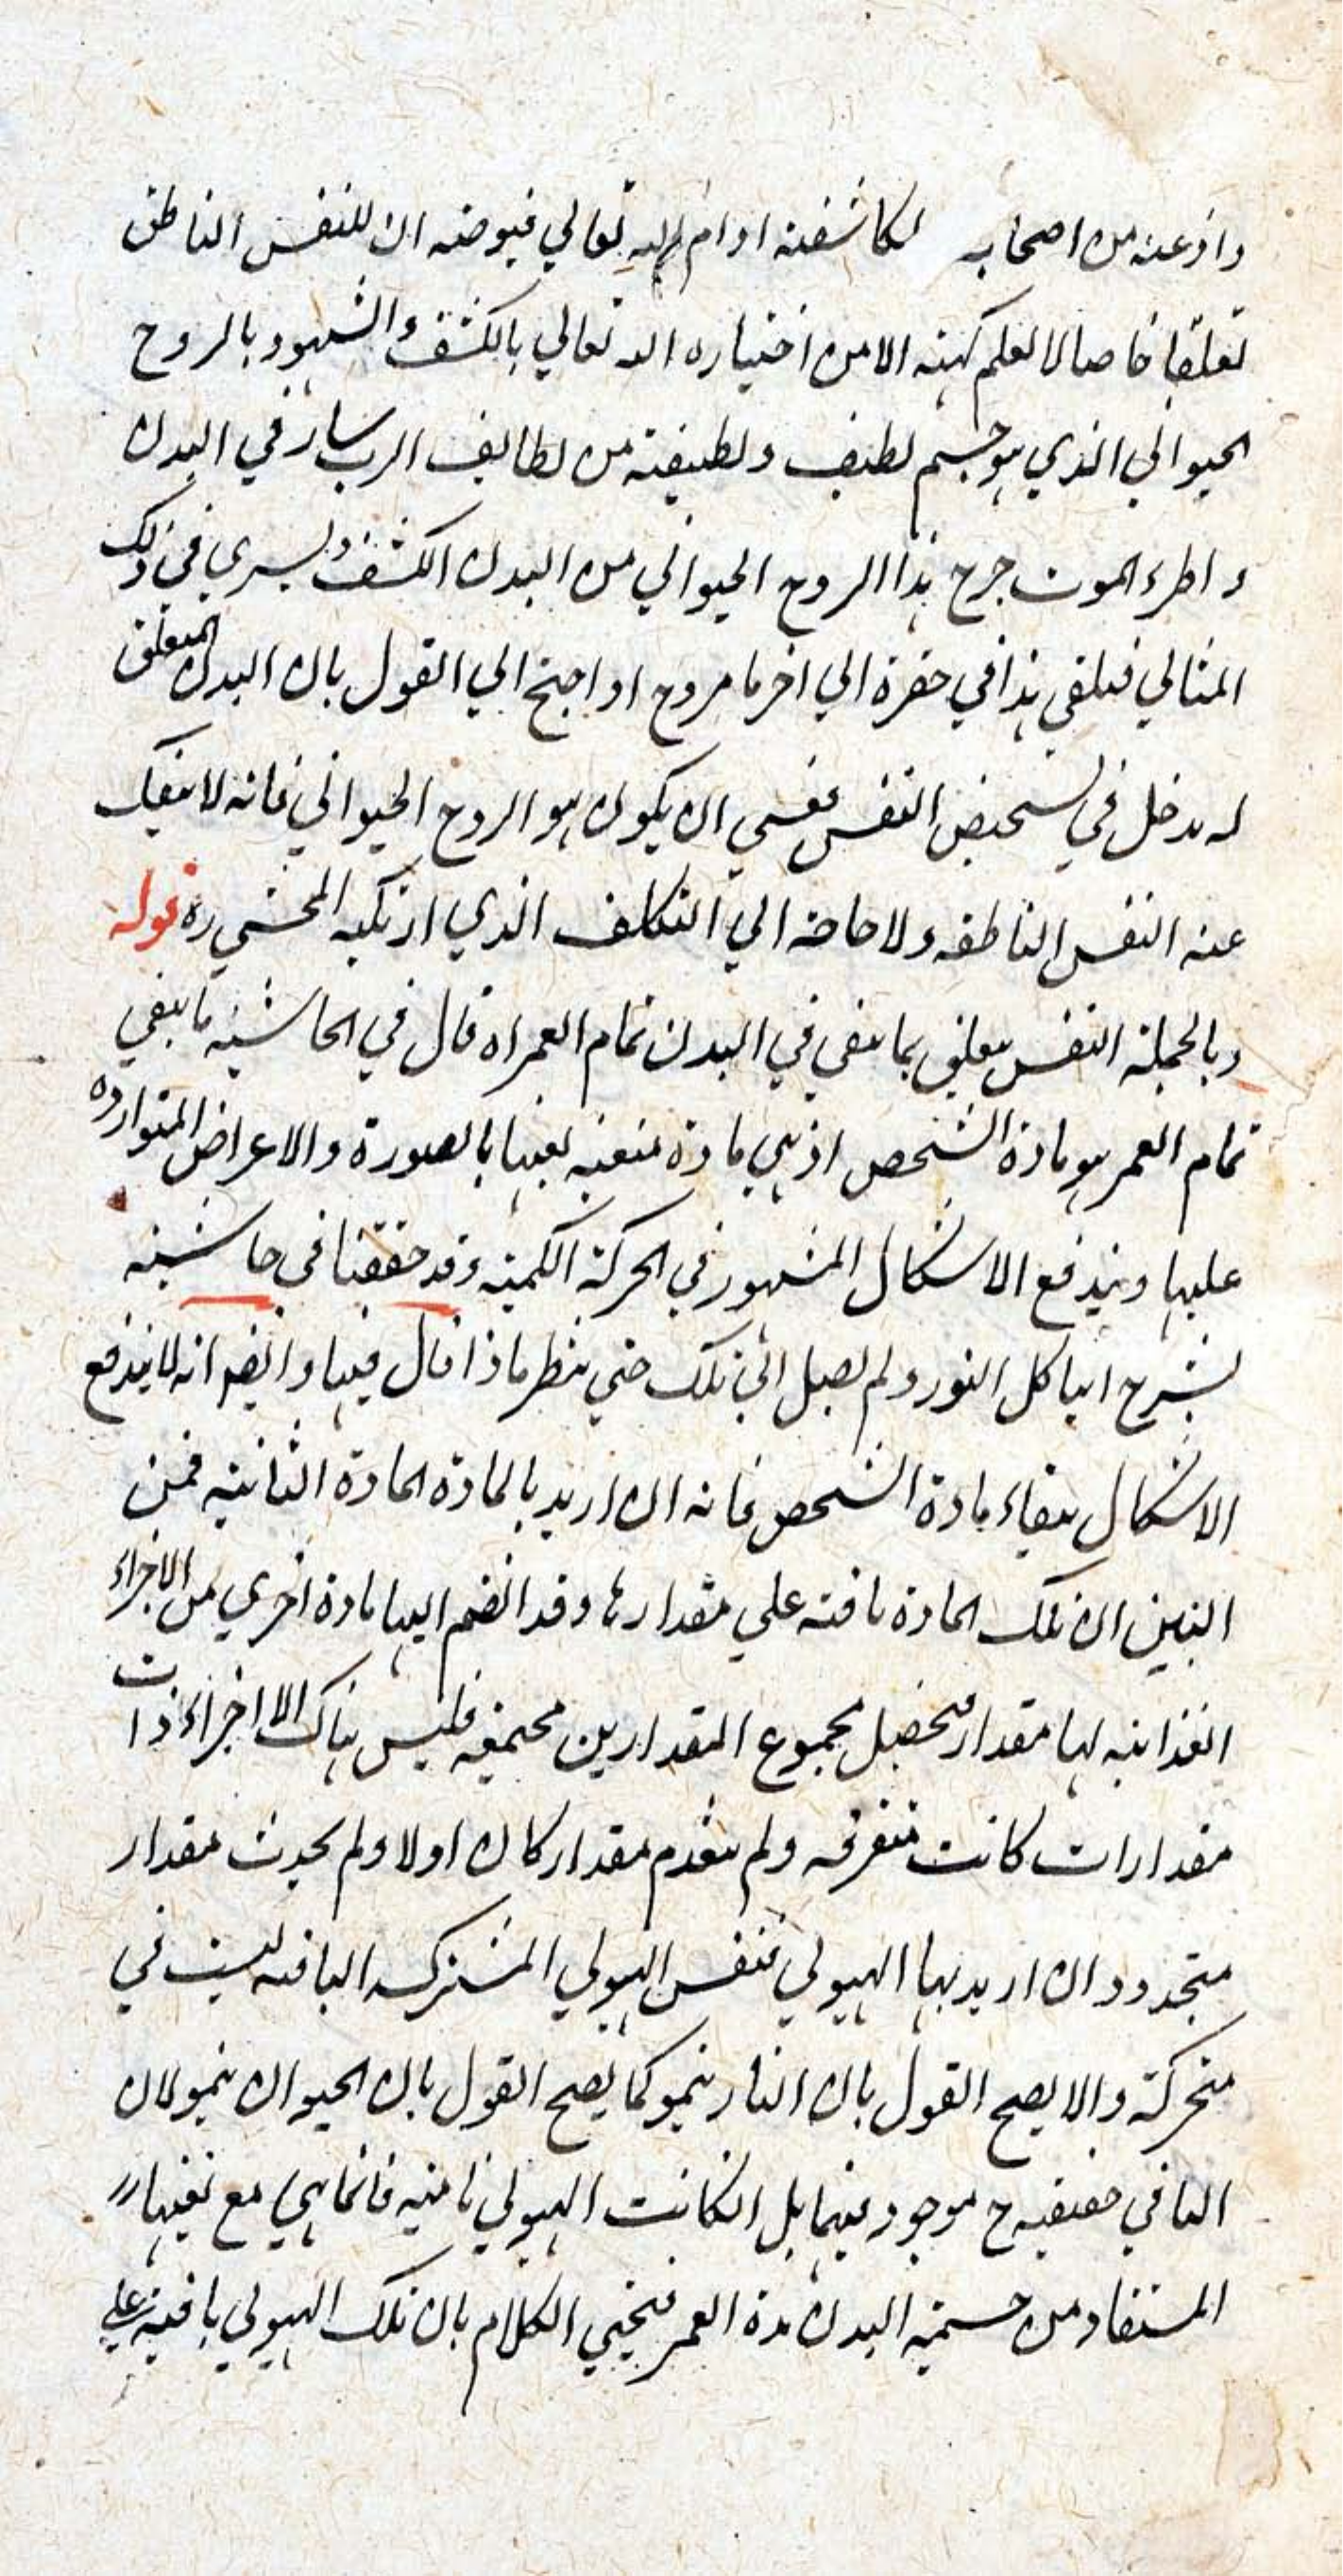 واذعنه من اصحابه لكاشفته ادام الله تعالي فيوضه ان للنفس الناطق
تعلقا خاصا لا تعلم كنهه الا من اختياره الله تعالي بالكشف والشهود بالروح
الحيواني الذي هو جسم لطيف ولطيفة من لطايف الرب سار في البدن
و اطرء الموت خرج هذا الروح الحيواني من البدن الكثيف ويسري في ذلك
المثالي فيلقي هذا في حفرة الي اخر ما مر وح او اجنح الي القول بان البدن المتعلق
له مدخل في تشخيص النفس فعسي ان يكون هو الروح الحيواني فانه لا ينفك
عنه النفس الناطقه ولا حاجة الي التكلف الذي ارتكبه المحشي ره قوله
وبالجملة النفس يتعلق بما يبقي في البدن تمام العمر اه قال في الحاشية ما يبقي
تمام العمر هو مادة الشخص اذ هي مادة متعينه بعينها بالصورة والاعراض المتوارده
عليها ويندفع الاشكال المشهور في الحركة الكمية وقد حققنا في حاشية
لشرح هياكل النور ولم يصل الي تلك حتي ينظر ماذا قال فيها وايضا انه لا يندفع
الاشكال ببقاء مادة الشخص فانه ان اريد بالمادة المادة الثانية فمن
البين ان تلك المادة باقية علي مقدارها وقد انضم اليها مادة اخري من الاجزاء
الغذائية لها مقدار فيحصل مجموع المقدارين مجتمعه فليس هناك الا اجزاء ذات
مقدارات كانت متفرقه ولم ينعدم مقدار كان اولا ولم يحدث مقدار
متجدد وان اريد بها الهيولي فنفس الهيولي المشتركه الباقيه ليست في
متحركة والا يصح القول بان النار ينمو كما يصح القول بان الحيوان ينمو لان
النامي حقيقيه ح موجود فيهما بل ان كانت الهيولي نامية فانما هي مع تعينها
المستفاد من جسمية البدن مدة العمر فيجيي الكلام بان تلك الهيولي باقية علي